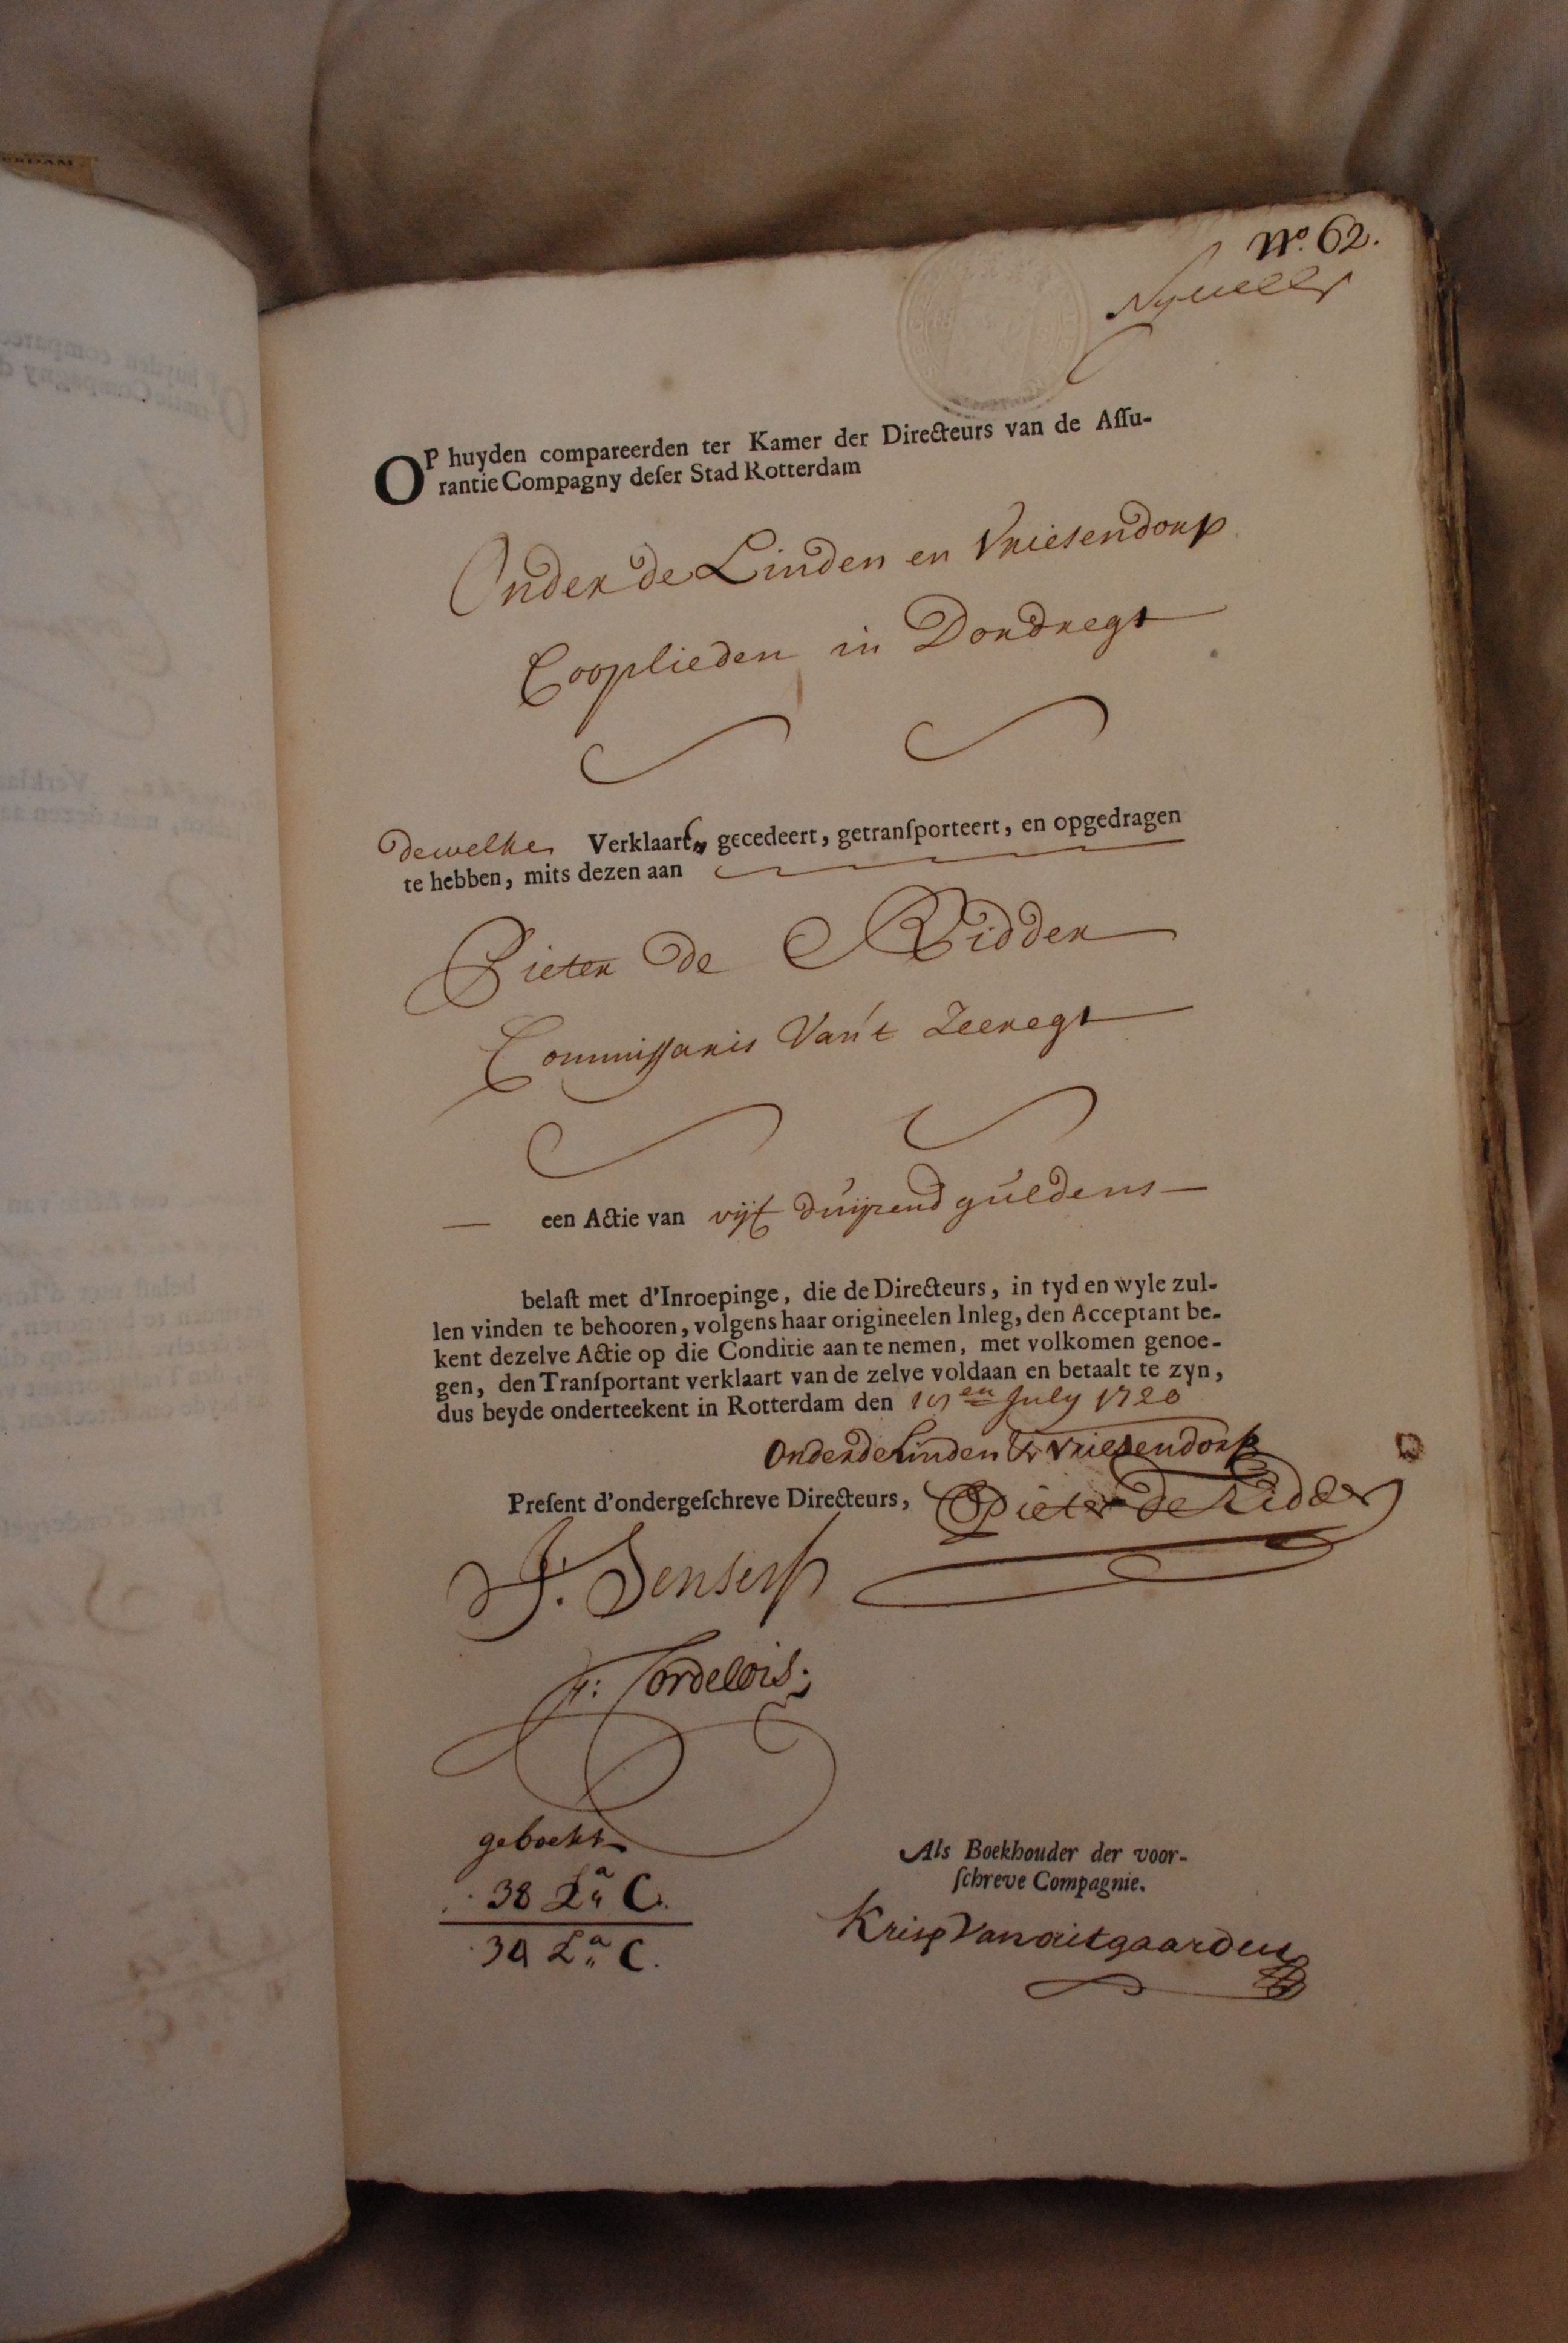 No. 62.
OP huyden compareerden ter Kamer der Directeurs van de Aſſu-
rantie Compagny deſer Stad Rotterdam
Onder de Linden en Vriesendorp
Cooplieden in Dordregt
dewelke Verklaaren, gecedeert, getranſporteert, en opgedragen
te hebben, mits dezen aan
Pieter de Ridder
Commissaris Van't Zeeregt
een Actie van vijf duijzend guldens
belaſt met d'Inroepinge, die de Directeurs, in tyd en wyle zul-
len vinden te behooren, volgens haar origineelen Inleg, den Acceptant be-
kent dezelve Actie op die Conditie aan te nemen, met volkomen genoe-
gen, den Tranſportant verklaart van de zelve voldaan en betaalt te zyn,
dus beyde onderteekent in Rotterdam den July 1720
Onder de Linden & Vriesendorp
Preſent d'ondergeſchreve Directeurs, Pieter de Ridder
geboekt
38 La C.
39 La C.
Als Boekhouder der voor-
ſchreve Compagnie.